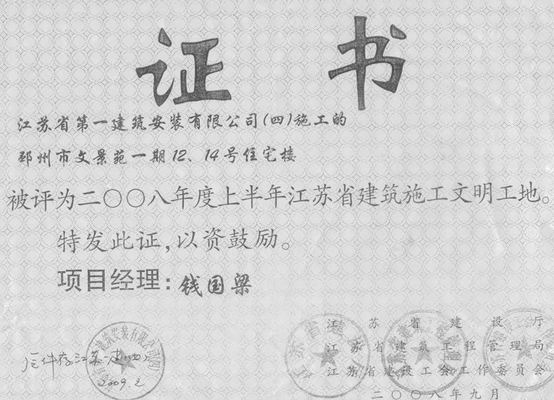 证 书
江苏省第一建筑安装有限公司(四)施工的
邳州市文景苑一期12、14号住宅楼
被评为二〇〇八年度上半年江苏省建筑施工文明工地。
特发此证,以资鼓励。
项目经理:钱国梁
江苏省建设厅
江苏省建筑工程管理局
江苏省建设工会工作委员会
二〇〇八年九月
2009.2